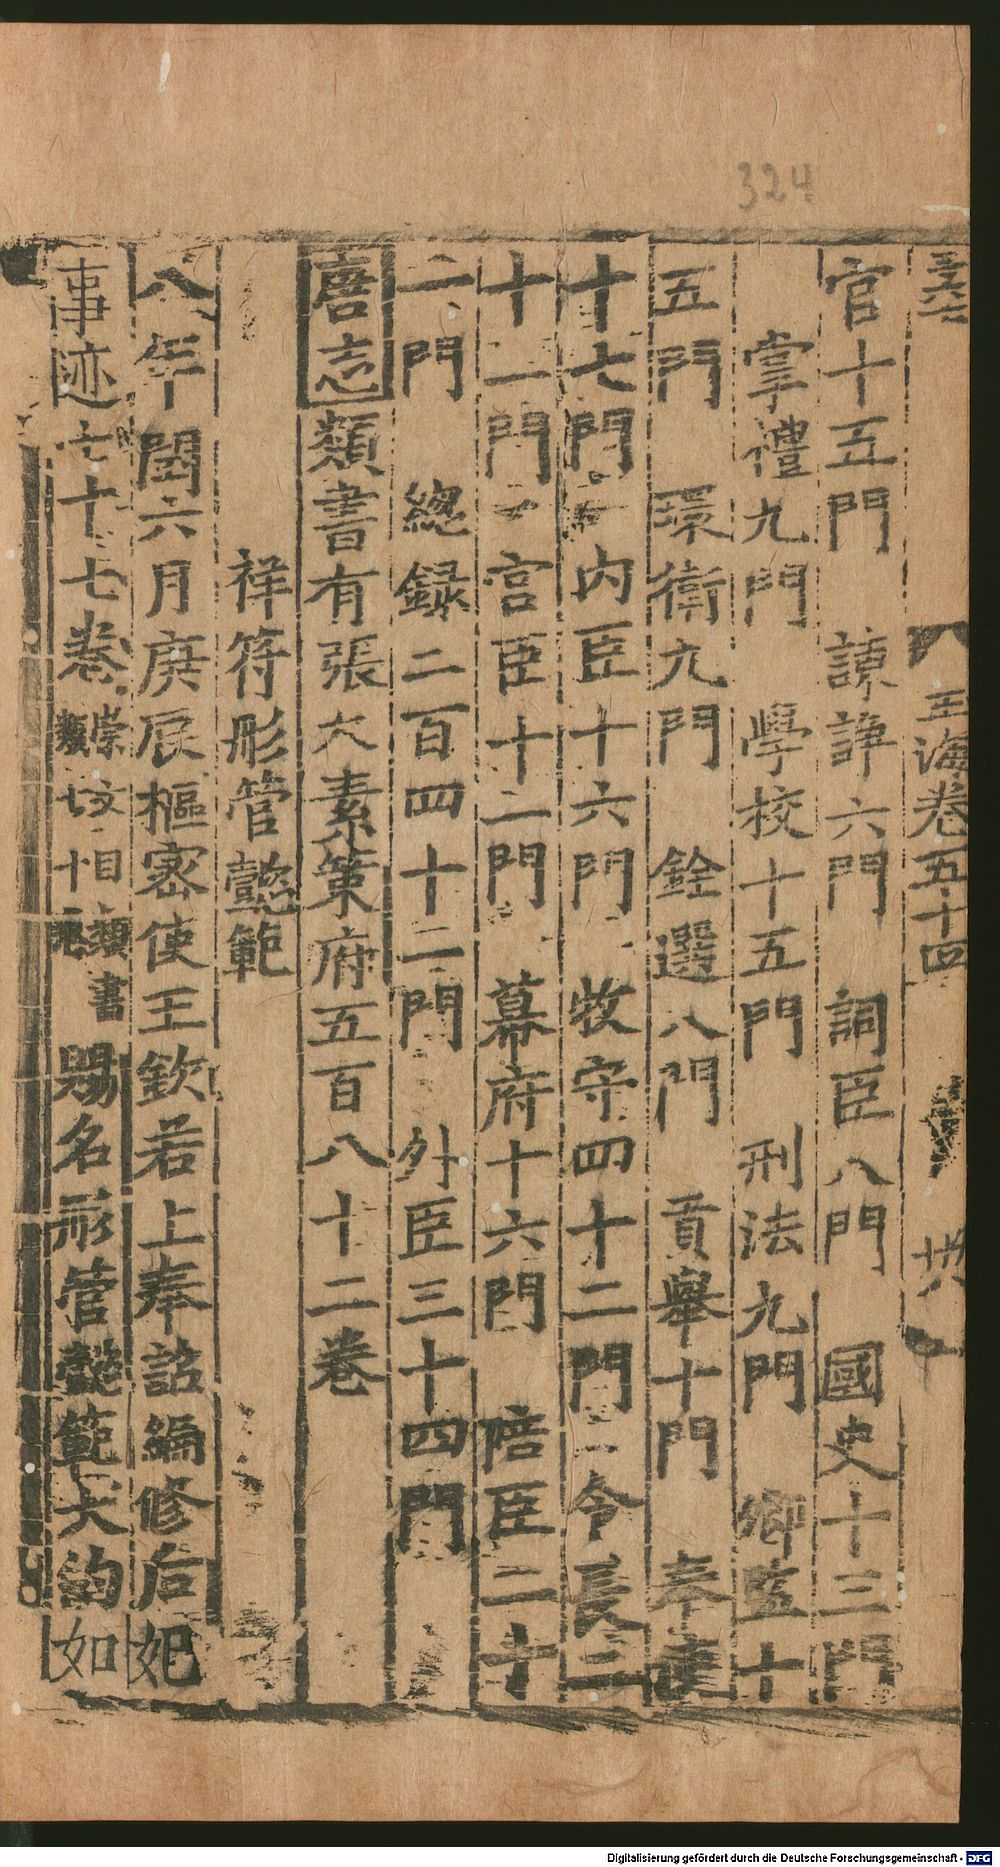 324
玉海卷五十四
官十五門　諫諍六門　詞臣八門　國史十三門
掌禮九門　學校十五門　刑法九門　卿監十
五門　環衛九門　銓選八門　貢舉十門　奉使
十七門　內臣十六門　牧守四十二門　令長二
十一門　宮臣十二門　幕府十六門　陪臣二十
二門　總録二百四十二門　外臣三十四門
唐志類書有張大素策府五百八十二卷
祥符彤管懿範
八年閏六月庚辰樞密使王欽若上奉詔編修后妃
事迹七十七卷崇文目類書類七十卷賜名彤管懿範大約如
Digitalisierung gefördert durch die Deutsche Forschungsgemeinschaft - DFG